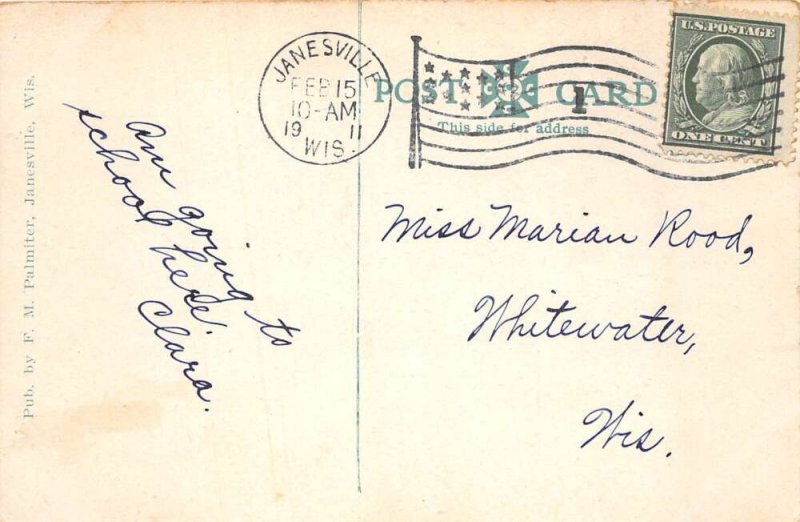 Pub. by F. M. Palmiter, Janesville, Wis.
JANESVILLE
FEB 15
10-AM
19 11
WIS.
1
U.S. POSTAGE
ONE CENT
POST CARD
This side for address
Am going to
school here.
Clara.
Miss Marian Rood,
Whitewater,
Wis.